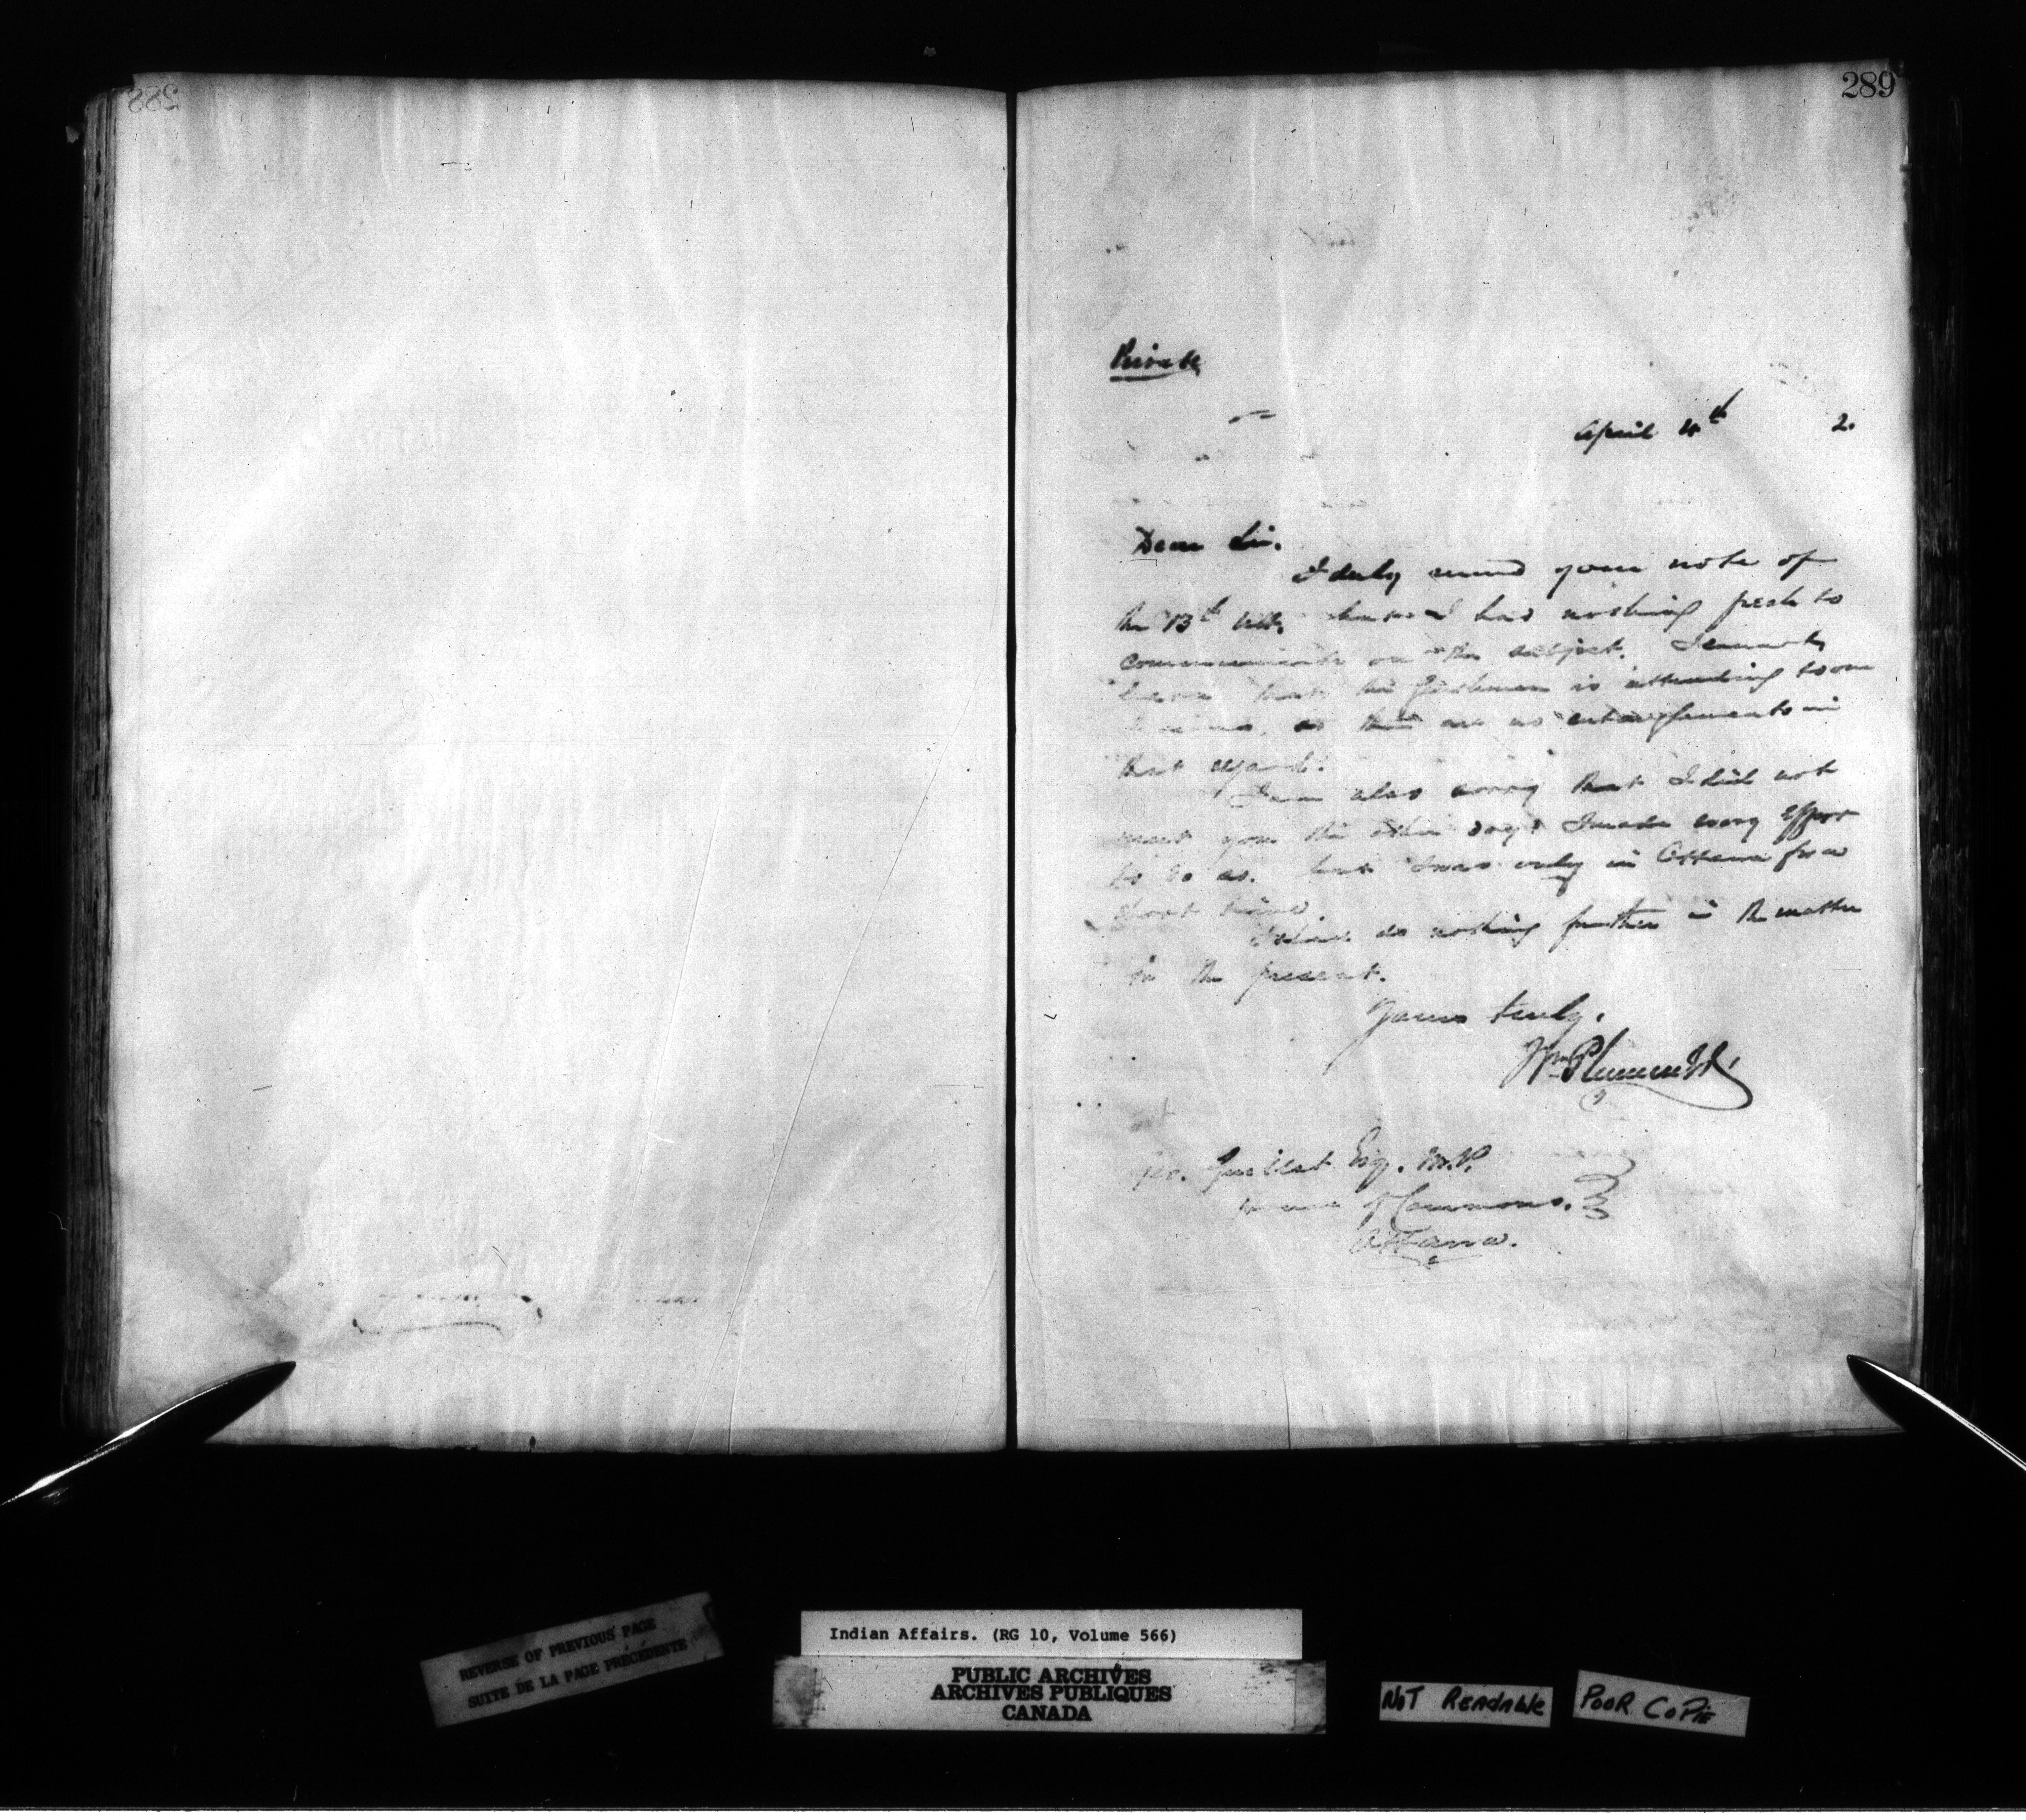 289
Private
April 4th 2.
Dear Sir.
I duly received your note of
the 13th ult. but I had nothing fresh to
communicate on the subject. I cannot
that the gentleman is attending to our
as there are no in
that regard.
I am also sorry that I did not
meet you the other day. I made every effort
to do so. but I was only in Ottawa for a
short time.
I shall do nothing further in the matter
for the present.
Yours truly.
Wm Plummer
Geo. Guillet Esq. M.P.
House of Commons.
Ottawa.
REVERSE OF PREVIOUS PAGE
SUITE DE LA PAGE PRÉCÉDENTE
Indian Affairs. (RG 10, Volume 566)
PUBLIC ARCHIVES
ARCHIVES PUBLIQUES
CANADA
NOT READABLE
POOR COPIE